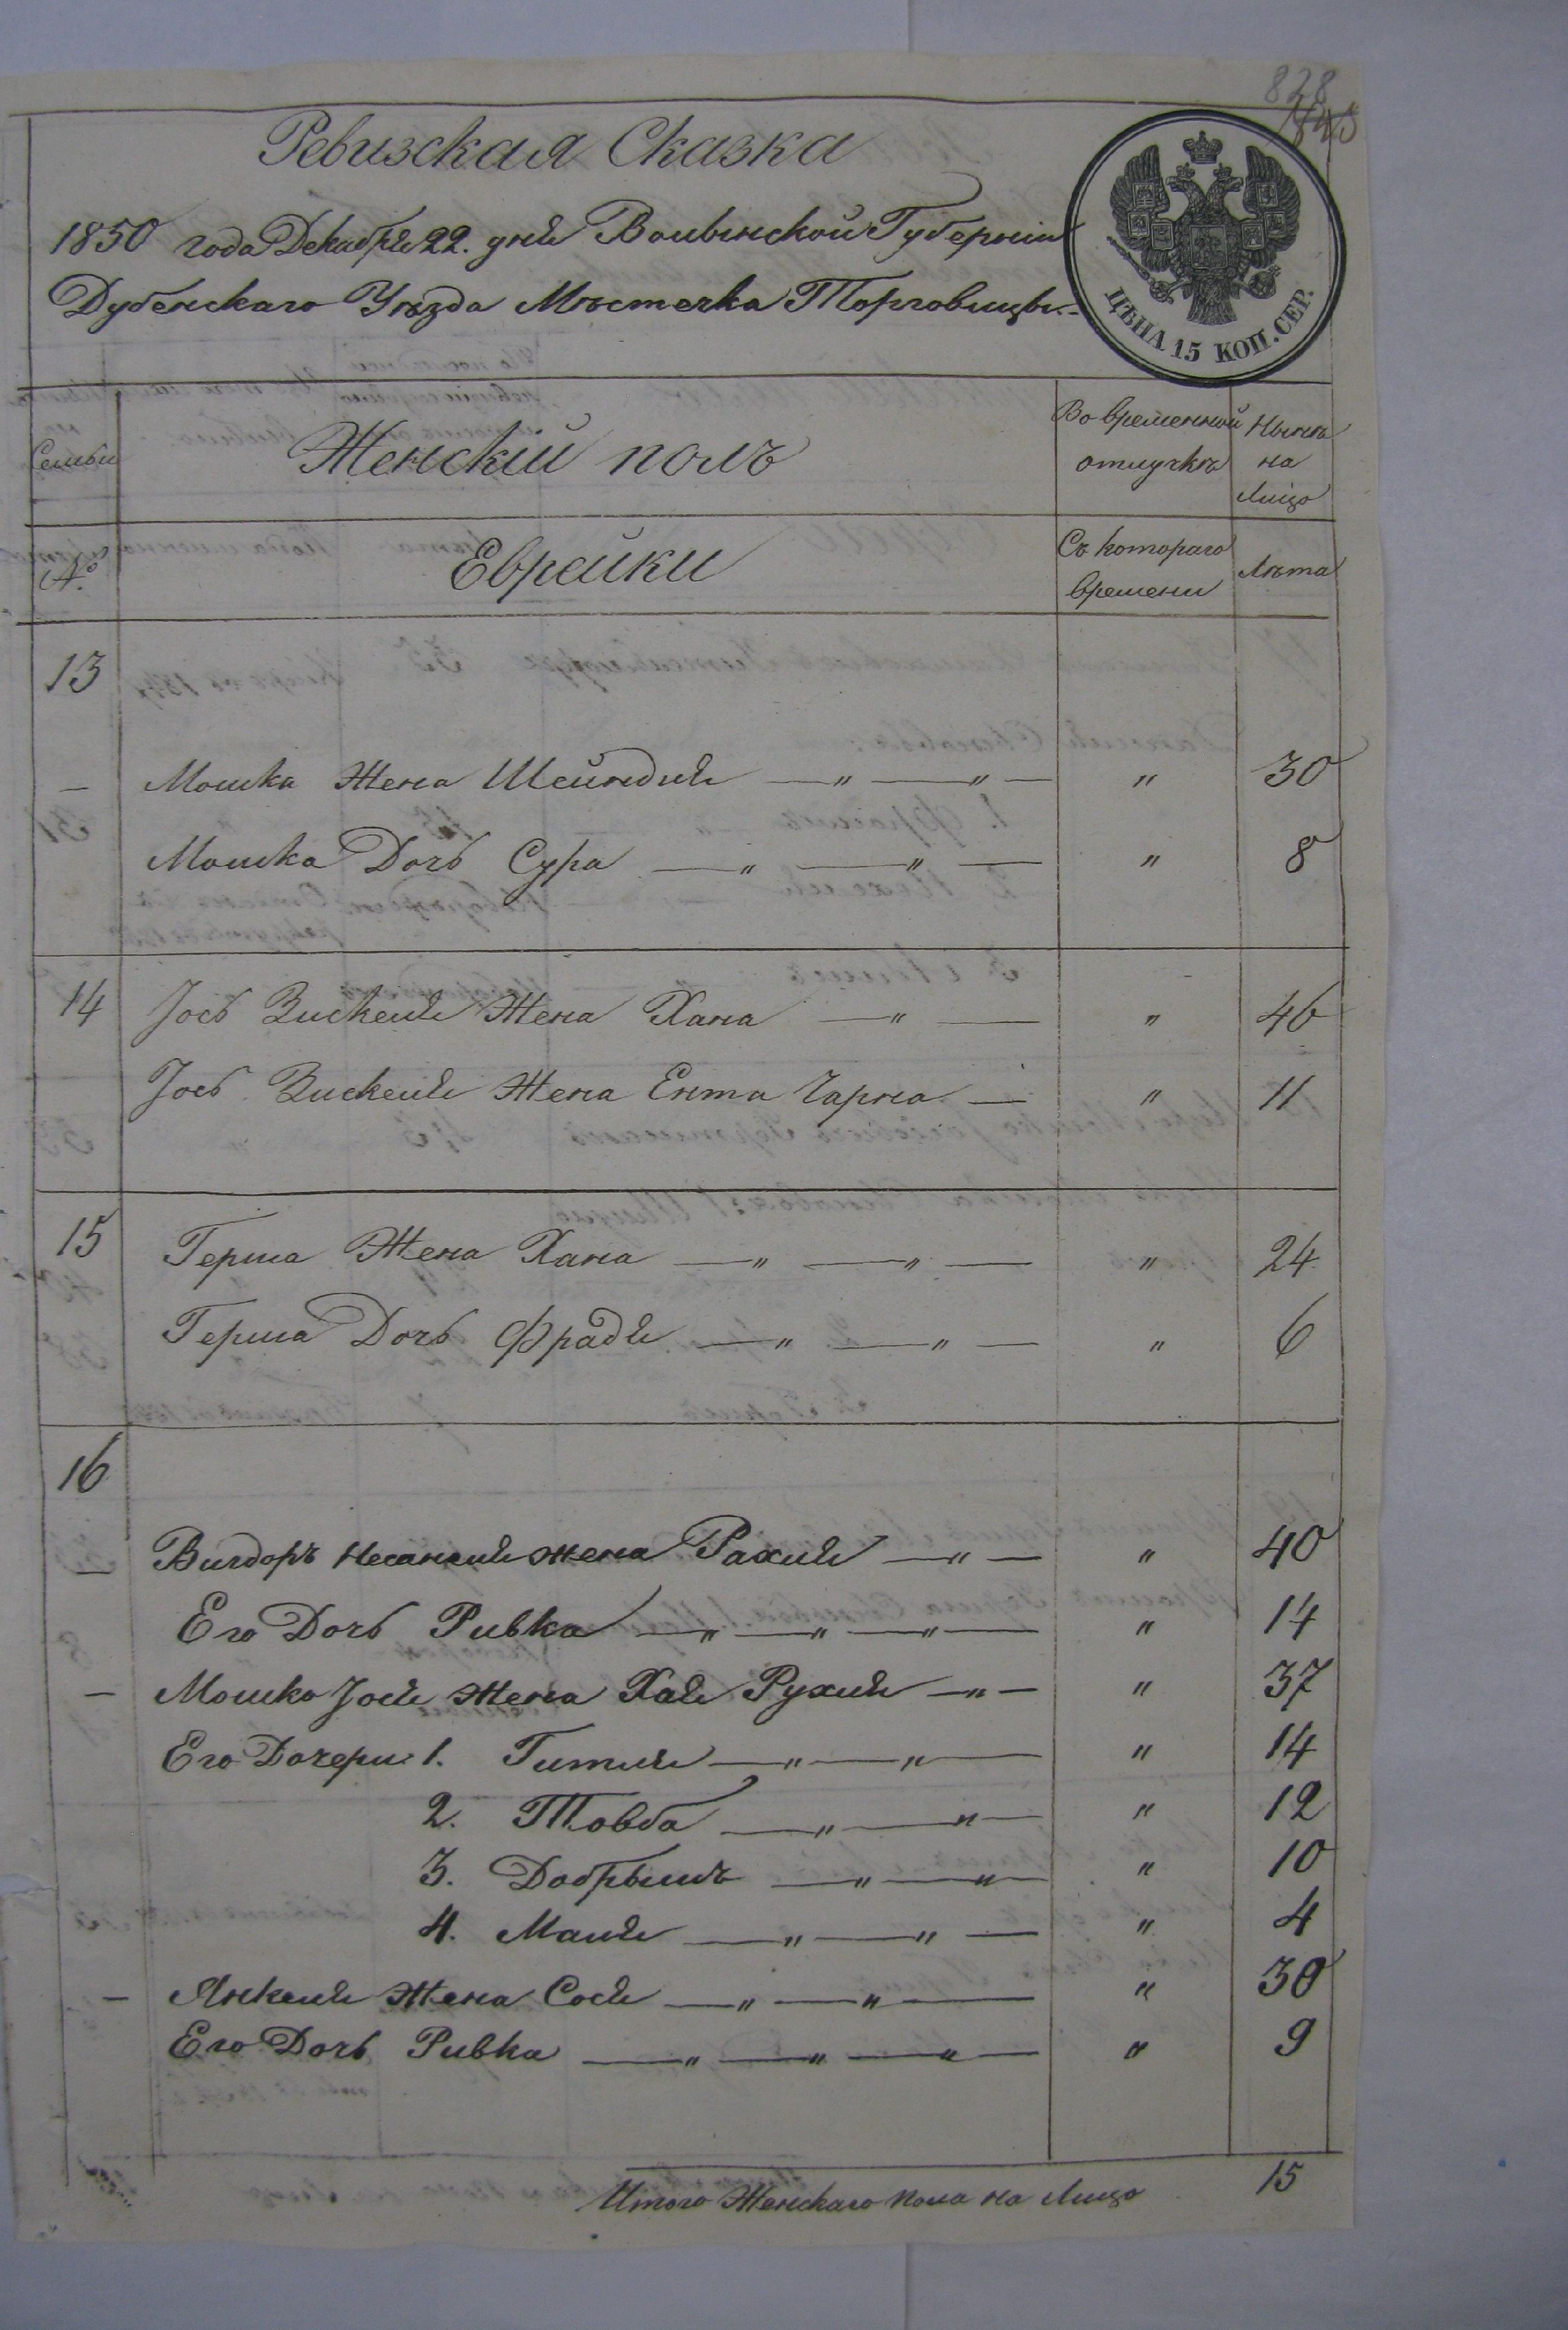 828
1845
Ревизская Сказка
1850 года Декабря 22. дня Волынской Губерніи
Дубенскаго Уѣзда Мѣстечка Торговицы.
ЦѢНА 15 КОП. СЕР.
Семьи
Женскій полъ
Во временной отлучкѣ
Нынѣ на Лицо
№
Еврейки
Съ котораго времени
Лѣта
13
— Мошка Жена Шейндля — „ — „ — „ 30
Мошка Дочь Сура — „ — „ — „ 8
14 Іось Зискеля Жена Хана — „ — „ 46
Іось Зискеля Жена Ента Чарна — „ 11
15 Герша Жена Хана — „ — „ — „ 24
Герша Дочь Фрадя — „ — „ — „ 6
16
— Вигдоръ Жена Рахля — „ — „ 40
Его Дочь Ривка — „ — „ — „ — „ 14
— Мошко Іося Жена Хая Рухля — „ — „ 37
Его Дочери 1. Гитля — „ — „ — „ 14
2. Товба — „ — „ — „ 12
3. Добрышъ — „ — „ — „ 10
4. Маля — „ — „ — „ 4
— Янкеля Жена Сося — „ — „ — „ 30
Его Дочь Ривка — „ — „ — „ — „ 9
Итого Женскаго пола на Лицо 15